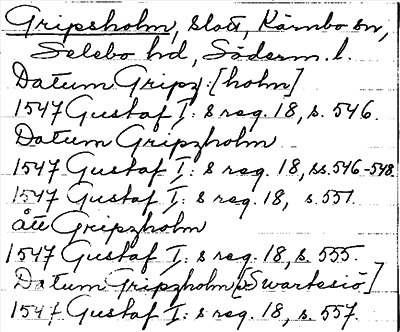 Gripsholm, slott, Kärnbo sn,
Selebo hd, Söderm. l.
Datum Gripz: [holm]
1547 Gustaf I: s reg. 18, s. 546.
Datum Gripzholm
1547 Gustaf I: s reg. 18, ss. 546-548.
1547 Gustaf I: s reg. 18, s. 551.
ått Gripzholm
1547 Gustaf I: s reg. 18, s. 555.
Datum Gripzholm [Swartesiö]
1547 Gustaf I: s reg. 18, s. 557.